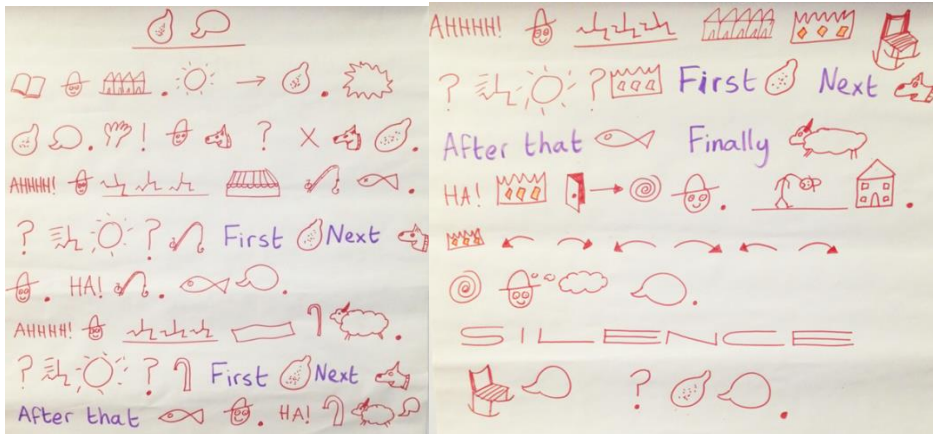 AHHHH!
? ? First Next
HA!
AHHHH!
? ? First Next
After that HA!
AHHHH!
? ? First Next
After that Finally
HA!
SILENCE
?